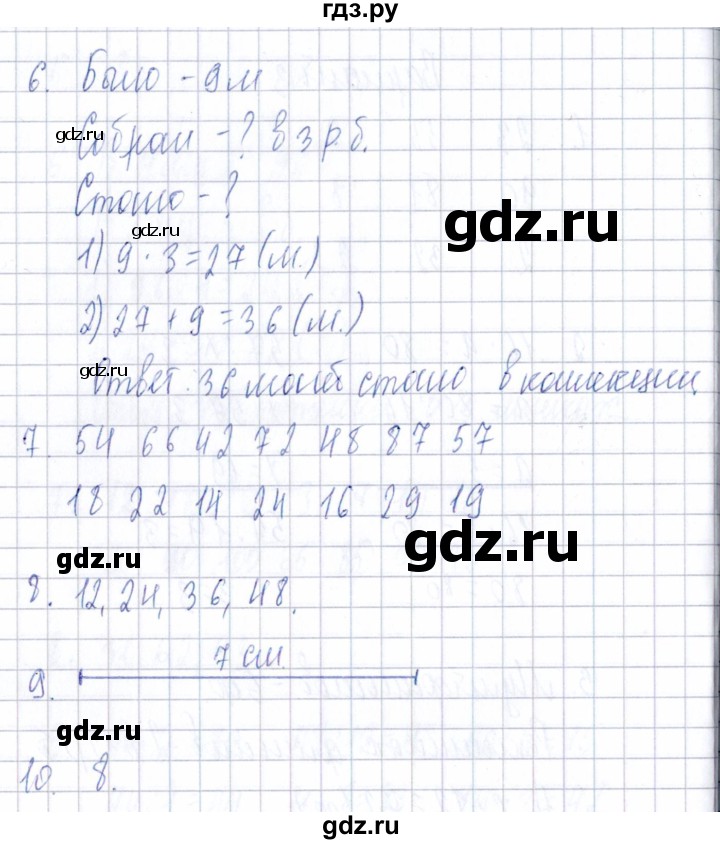 гдз.ру
6. Было - 9 м
Собрали - ? в 3 р. б.
gdz.ru
Стало - ?
gdz.ru
1) 9 · 3 = 27 (м.)
2) 27 + 9 = 36 (м.)
gdz.ru
Ответ. 36 монет стало в коллекции
7. 54 66 42 72 48 87 57
18 22 14 24 16 29 19
gdz.ru
gdz.ru
8. 12, 24, 36, 48.
7 см.
9.
gdz.ru
10. 8.
gdz.ru